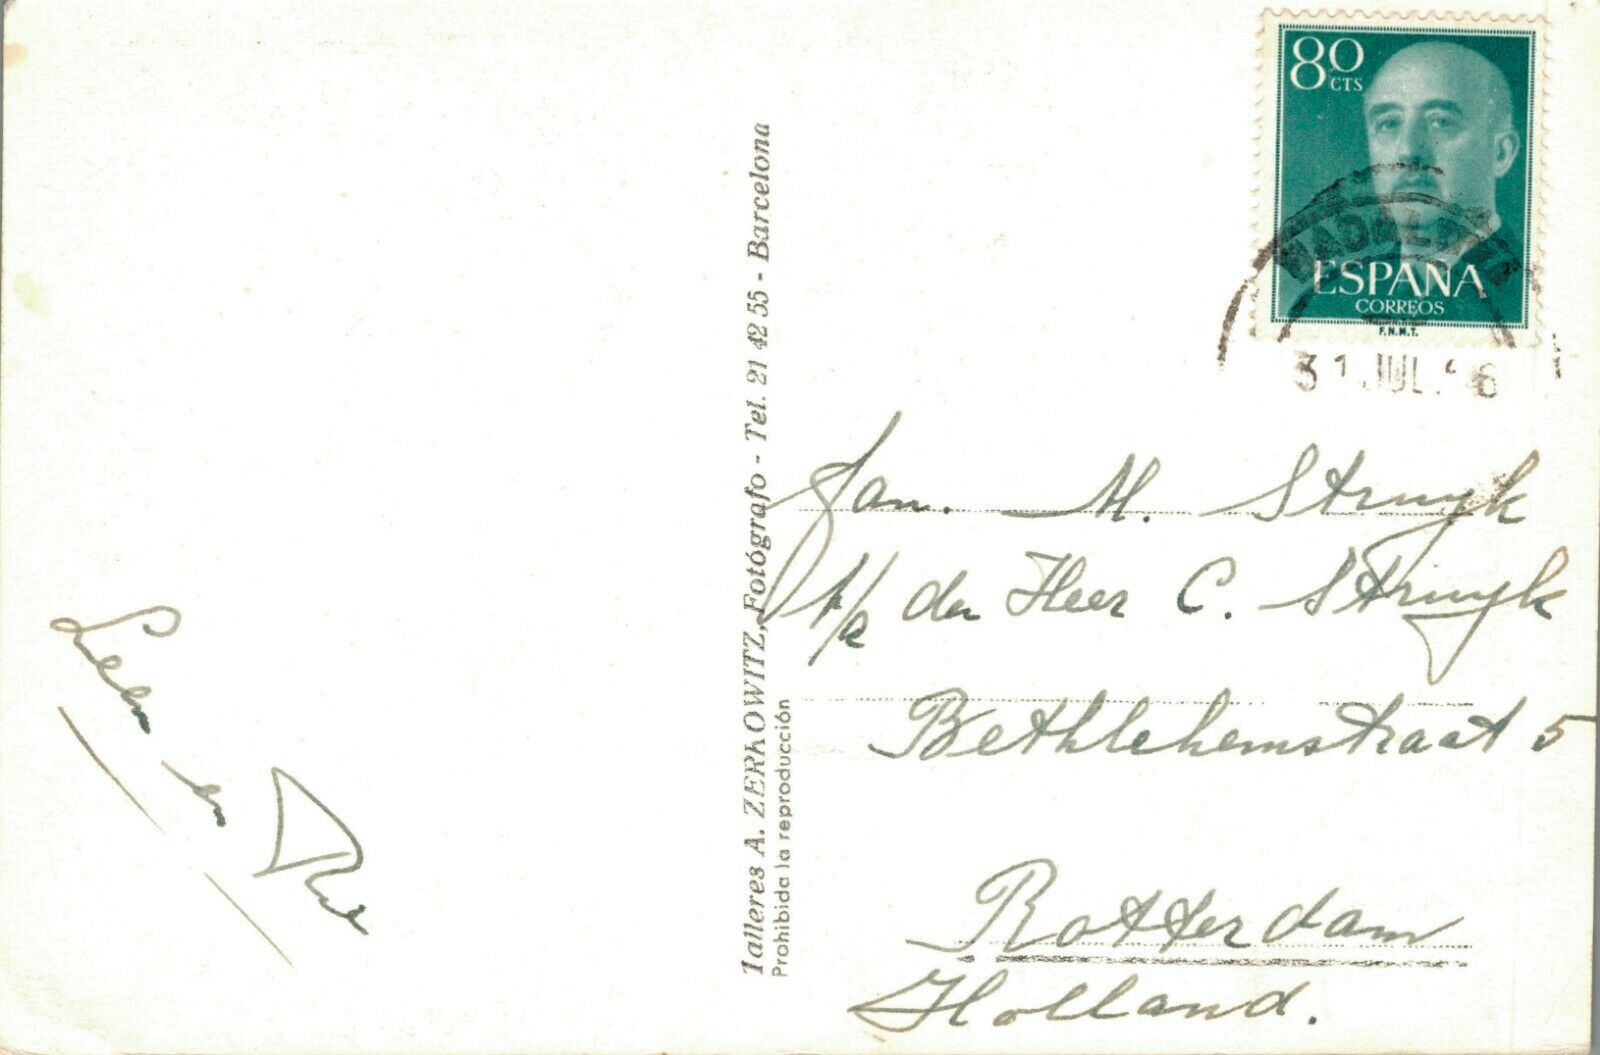 80
CTS
ESPAÑA
CORREOS
F.N.M.T.
31 JUL.
Talleres A. ZERKOWITZ, Fotógrafo - Tel. 21 42 55 - Barcelona
Prohibida la reproducción
Jan. M. Struyk
p/a den Heer C. Struyk
Bethlehemstraat 5
Rotterdam
Holland.
en